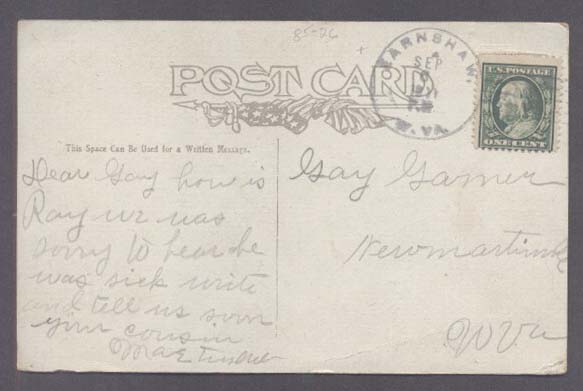 85-26
POST CARD
EARNSHAW,
SEP
W. VA.
U.S. POSTAGE
ONE CENT
This Space Can Be Used for a Written Message.
Dear Gay how is
Ray we was
sorry to hear he
was sick write
and tell us soon
your cousin
Gay Garner
W Va